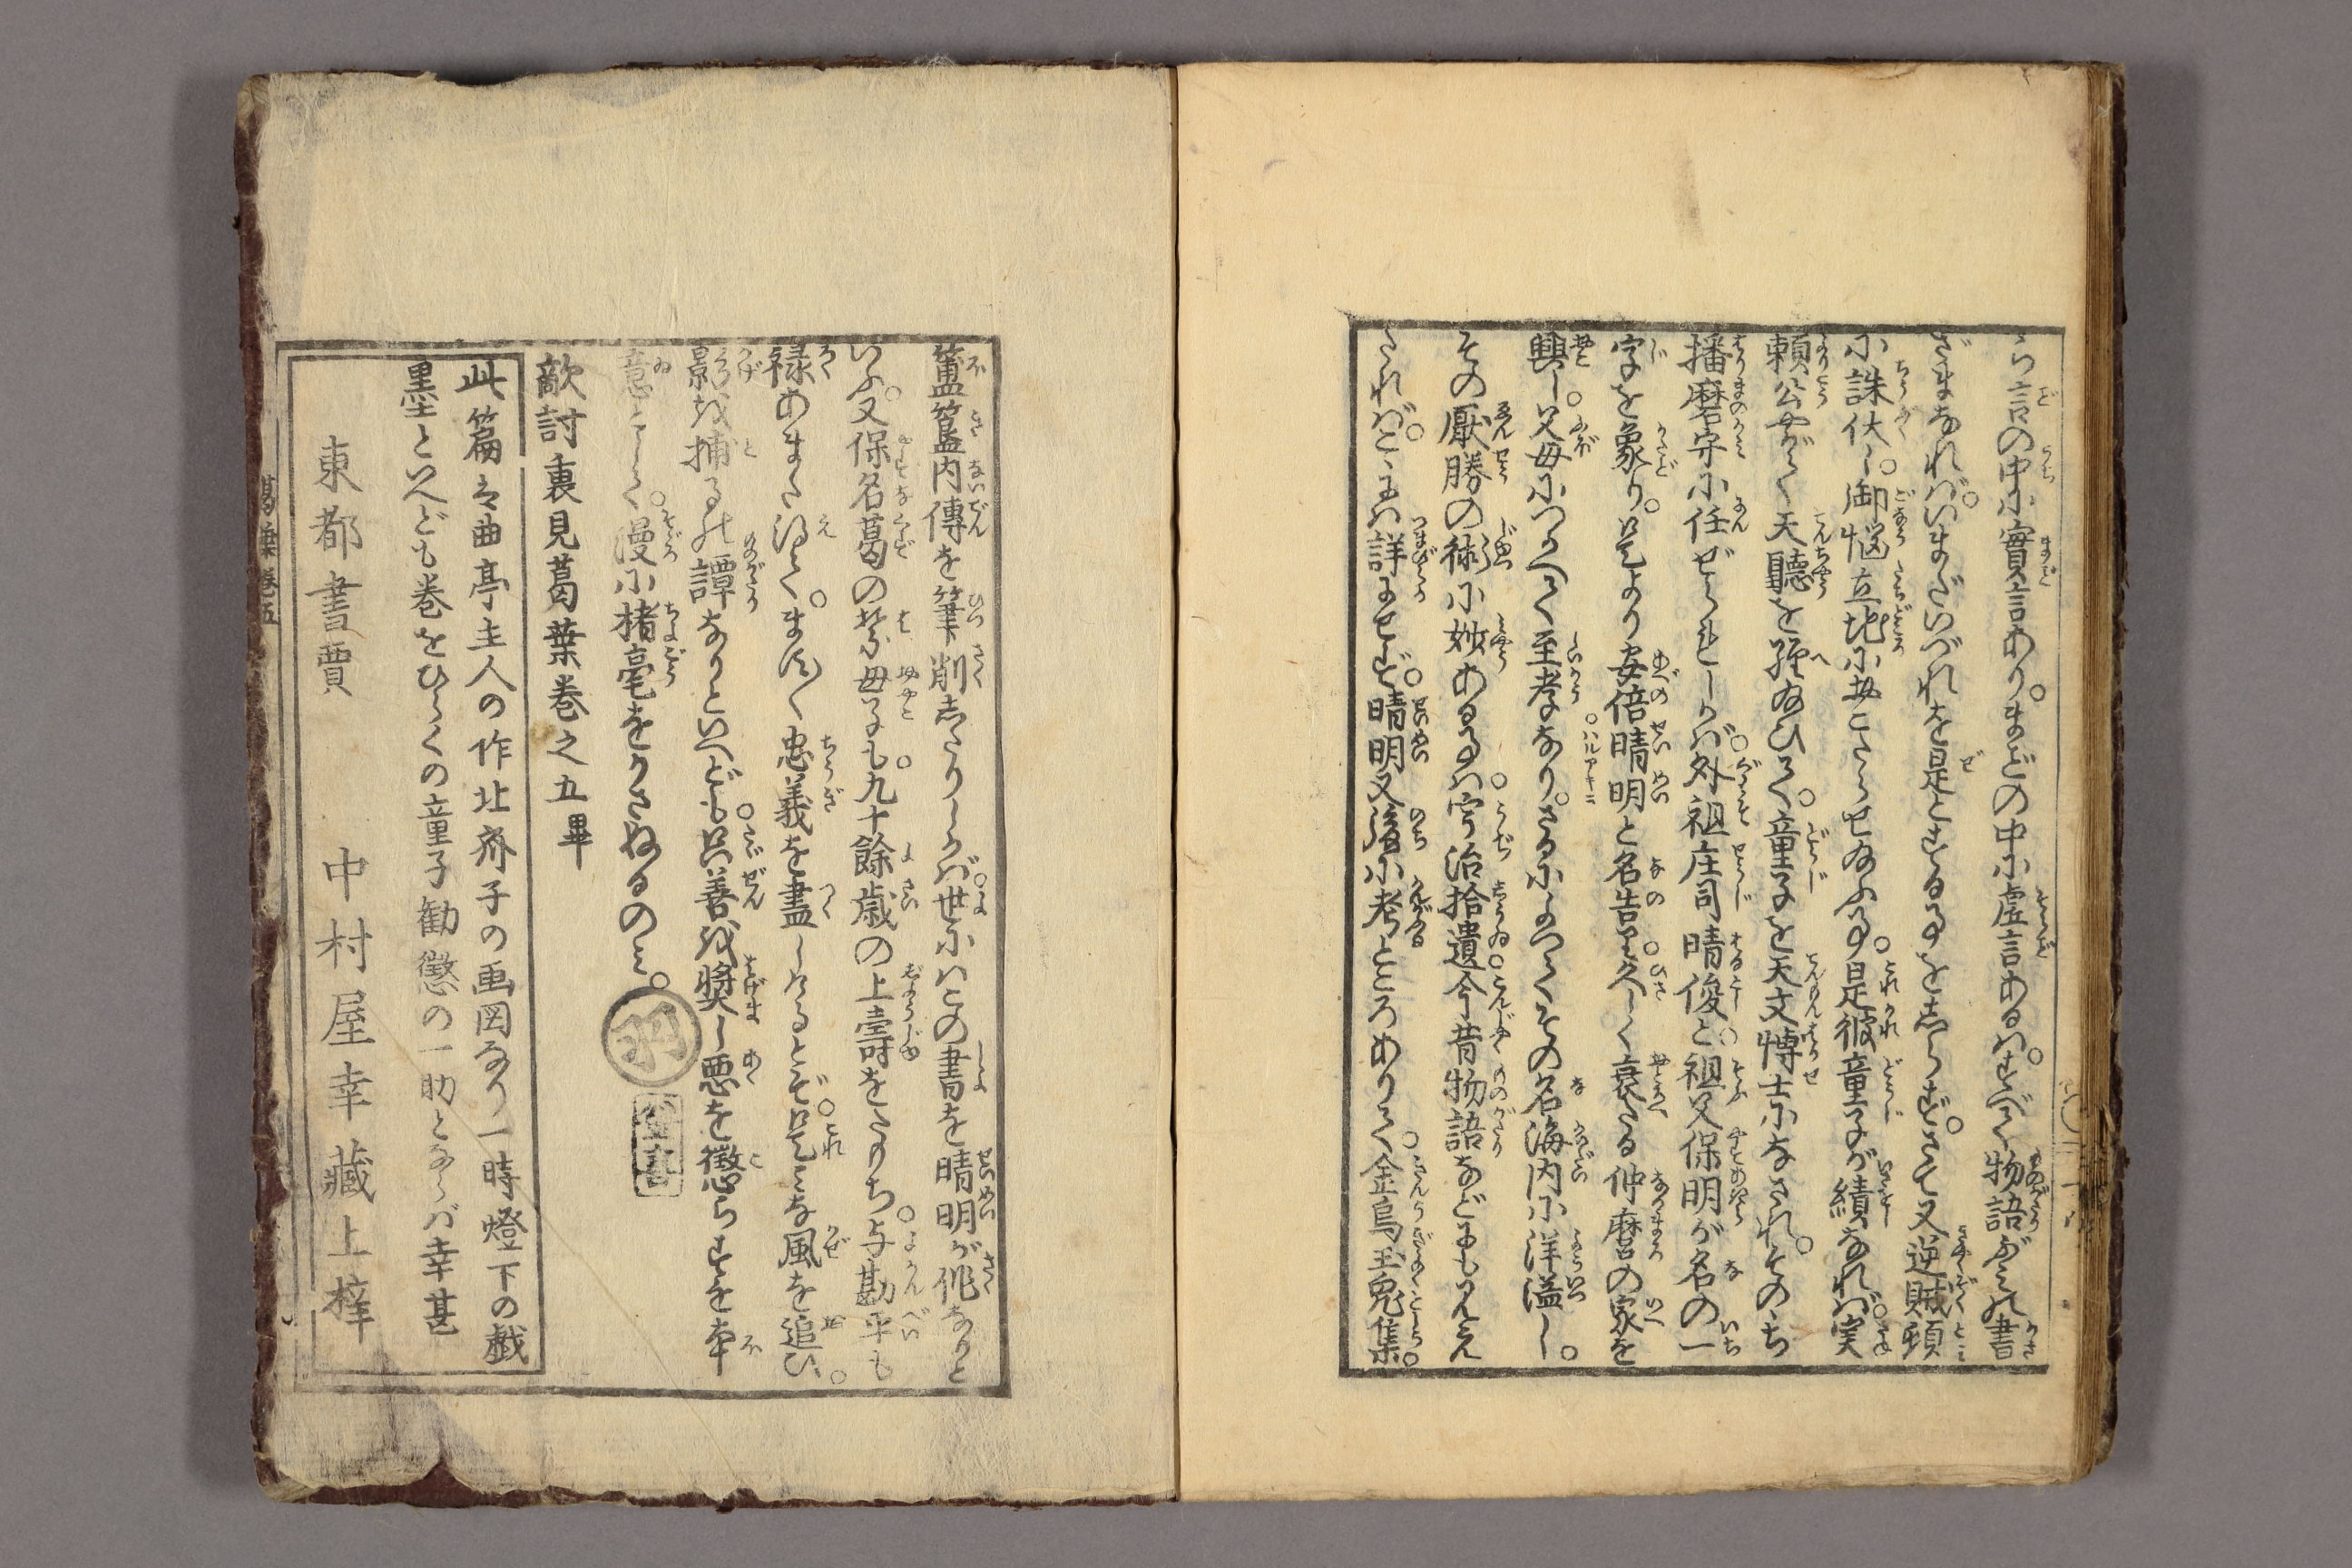 ら言の中に實言あり。まどの中に虚言あるは。すべて物語ぶみの書
ざまなれば。いまだいづれを是とするゝをしらず。さて又逆賊頼
に誅伏し。御悩立地におこたらせ給ふ事。是彼童子が績なれば。実
頼公やがて天聴を經給ひて。童子を天文博士になされ。そのゝち
播磨守に任ぜられしかば。外祖庄司晴俊と。祖父保明が名の一
字を象り。是より安倍晴明と名告。久しく衰たる仲麿の家を
興し。父母につかへて至孝なり。さるによつてその名海内に洋溢し。
その厭勝の術に妙ある事は。宇治拾遺。今昔物語などにも見え
たれば。こゝには詳にせず。晴明又後に考ところありて。金烏玉兔集。
簠簋内傳を筆削したりしかば。世にはこの書を晴明が作なりと
いふ。又保名葛の葉母子も。九十餘歳の上壽をたもち。与勘平も
禄あまた得て。ます〳〵忠義を盡しけるとぞ。是みな風を追ひ。
影を捕るの譚なりといへども。只善を奨し悪を懲らすを本
意として。漫に楮毫をかさぬるのミ。
敵討裏見葛葉巻之五畢
此篇は曲亭主人の作北斎子の画図なり一時燈下の戯
墨といへども巻をひらくの童子勧懲の一助とならば幸甚
東都書賈 中村屋幸藏上梓
葛葉巻五